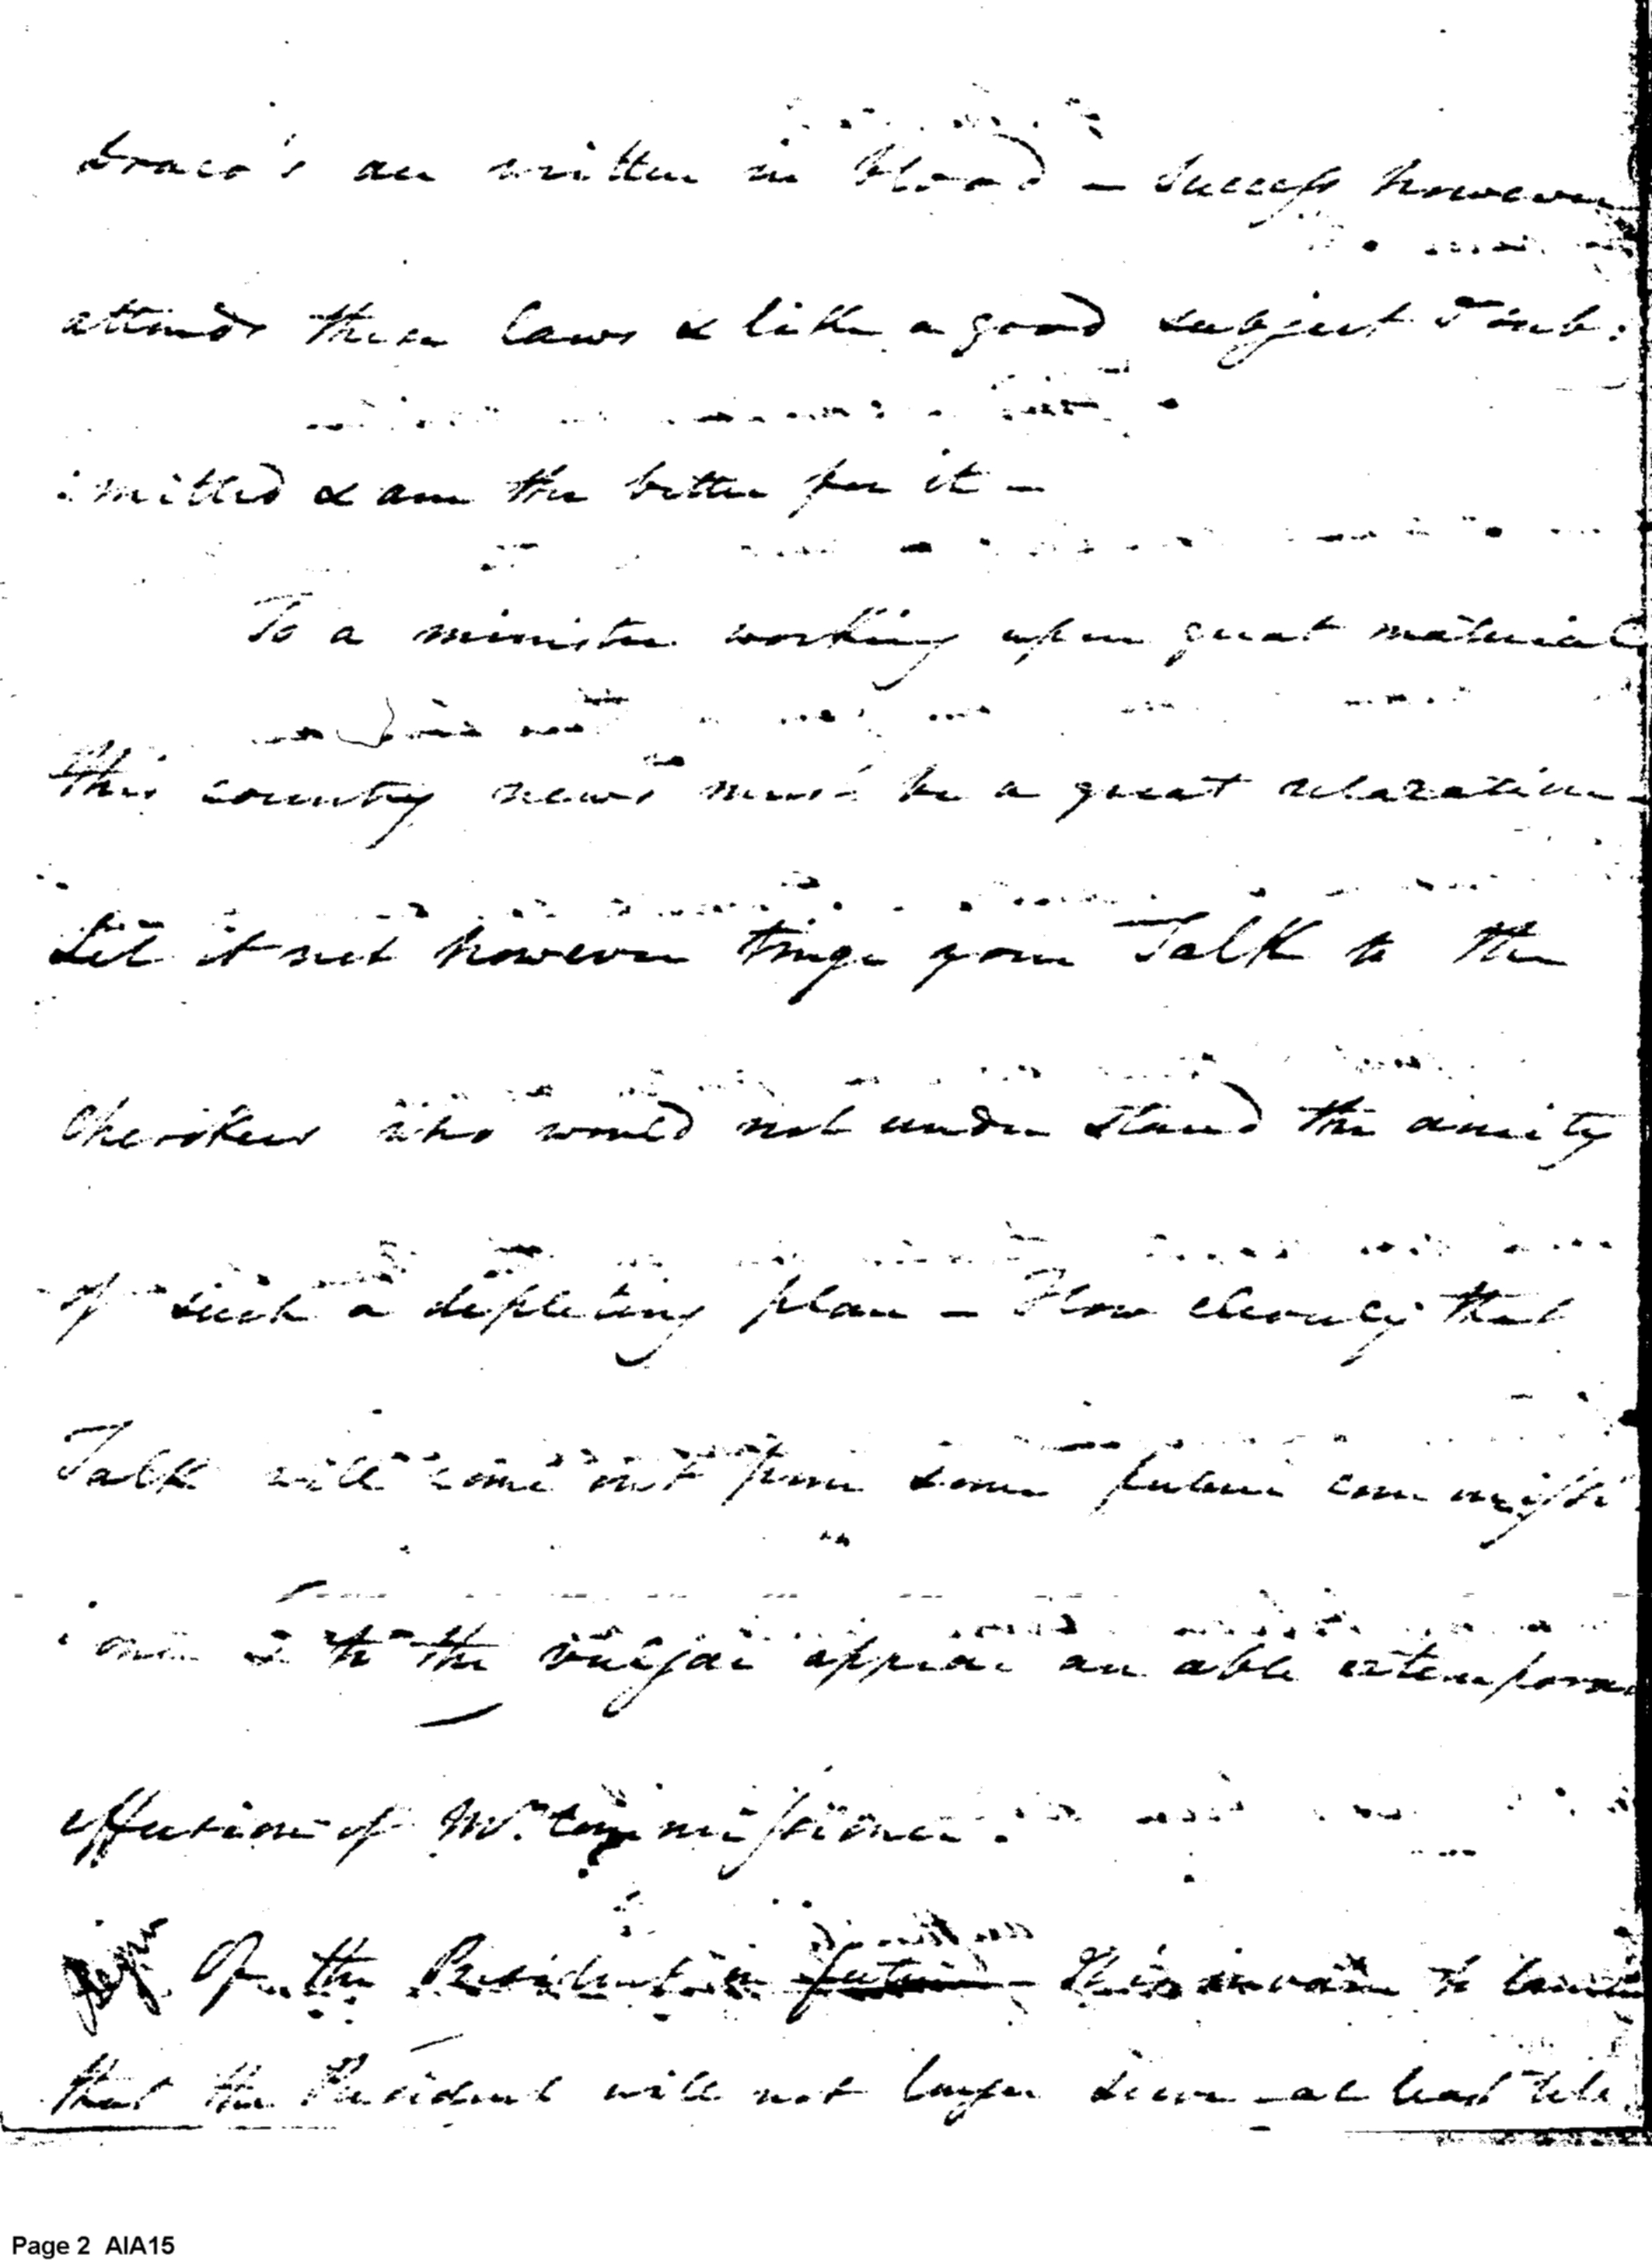 Draco's are written in blood – Success however
attends these laws & like a good subject I sub:
:mitted & am the better for it –
To a minister working upon great materials
this country news must be a great relaxation –
Let it not however tinge your Talk to the
Cherokees who would not under stand the amity
of such a depleting plan – How cleverly that
Talk will come out from some future commissi
:oner & to the vulgar appear an able extempora
effusion of Mr. Commissioner.
Of the President in future – This is in
that the President will not longer serve – at least
Page 2 AIA15